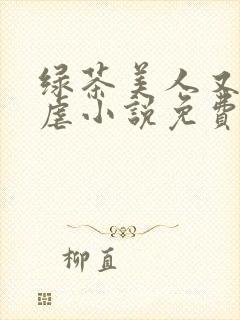 绿茶美人又
虐小説免費
柳直